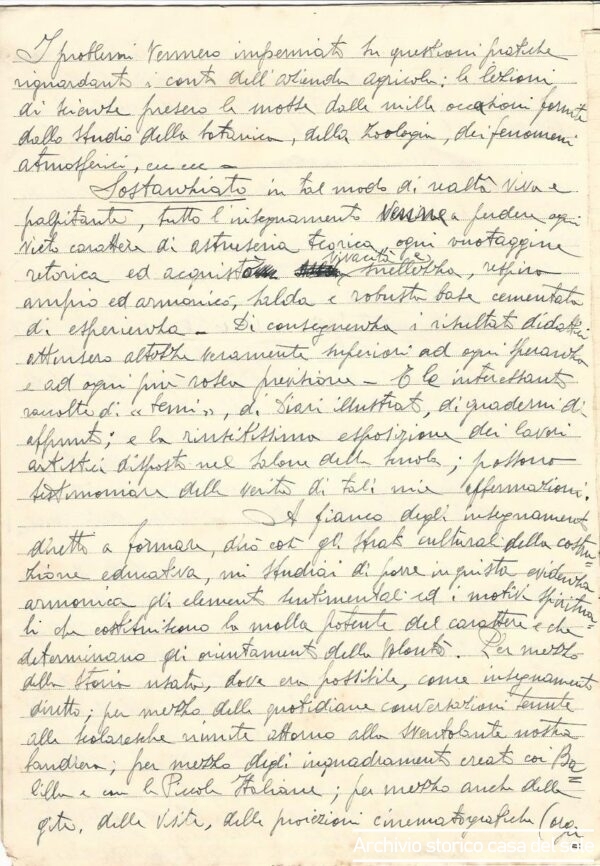 I problemi vennero imperniati su questioni pratiche
riguardanti i conti dell'azienda agricola; le lezioni
di scienze presero le mosse dalle mille occasioni fornite
dallo studio della botanica, della zoologia, dei fenomeni
atmosferici, ecc ecc -
Sostanziato in tal modo di realtà viva e
palpitante, tutto l'insegnamento venne a perdere ogni
vieto carattere di astruseria teorica, ogni vuotaggine
retorica ed acquistò vivacità e snellezza, respiro
ampio ed armonico, salda e robusta base cementata
di esperienza - Di conseguenza i risultati didattici
attinsero altezze veramente superiori ad ogni speranza
e ad ogni più rosea previsione - E le interessanti
raccolte di "temi", di Diari illustrati, di quaderni di
appunti; e la riuscitissima esposizione dei lavori
artistici disposta nel salone della scuola; possono
testimoniare della verità di tali mie affermazioni.
A fianco degli insegnamenti
diretti a formare, dirò così gli strati culturali della costru=
zione educativa, mi studiai di porre in giusta evidenza
armonica gli elementi sentimentali ed i motivi spiritua=
li che costituiscono la molla potente del carattere e che
determinano gli orientamenti della volontà. Per mezzo
della storia usata, dove era possibile, come insegnamento
diretto; per mezzo delle quotidiane conversazioni tenute
alle scolaresche riunite attorno alla sventolante nostra
bandiera; per mezzo degli inquadramenti creati coi Ba=
lilla e con le Piccole Italiane; per mezzo anche delle
gite, delle visite, delle proiezioni cinematografiche
Archivio storico casa del sole